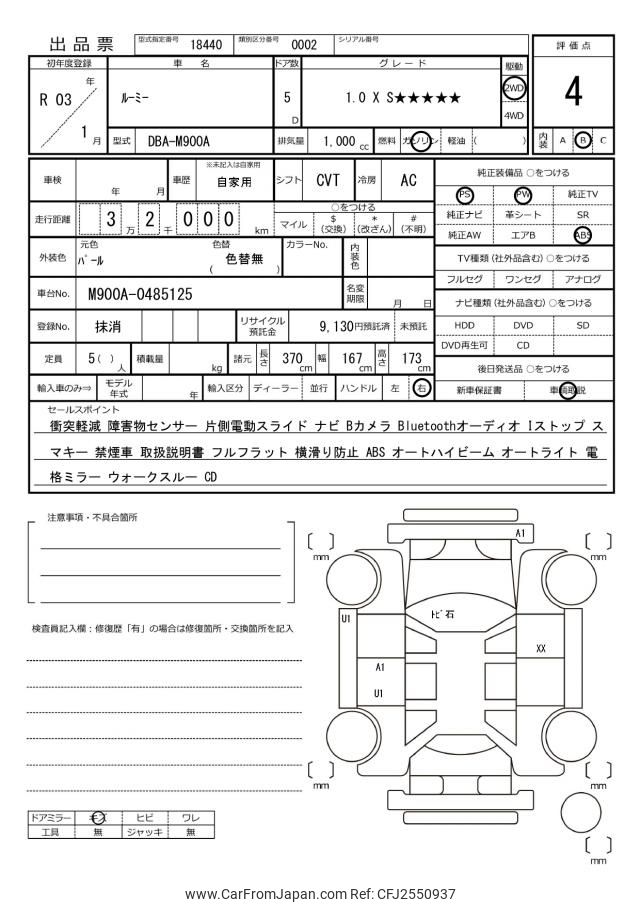 出品票
型式指定番号 18440 類別区分番号 0002 シリアル番号
評価点
初年度登録 車 名 ドア数 グレード 駆動
R 03 年 1 月 ルーミー 5 D 1.0 X S★★★★★ 2WD 4WD
4
型式 DBA-M900A 排気量 1,000 cc 燃料 ガソリン 軽油 ( )
内装 A B C
車検 年 月 車歴 ※未記入は自家用 自家用 シフト CVT 冷房 AC
純正装備品 ○をつける
PS PW 純正TV
走行距離 3 万 2 千 0 0 0 km ○をつける マイル $ (交換) * (改ざん) # (不明)
純正ナビ 革シート SR
純正AW エアB ABS
外装色 元色 パール 色替 ( 色替無 ) カラーNo. 内装色
TV種類 (社外品含む) ○をつける
フルセグ ワンセグ アナログ
車台No. M900A-0485125 名変期限 月 日
ナビ種類 (社外品含む) ○をつける
登録No. 抹消 リサイクル預託金 9,130円預託済 未預託
HDD DVD SD
DVD再生可 CD
定員 5 ( ) 人 積載量 kg 諸元 長さ 370 cm 幅 167 cm 高さ 173 cm
後日発送品 ○をつける
輸入車のみ⇒ モデル年式 年 輸入区分 ディーラー 並行 ハンドル 左 右
新車保証書 車輌取説
セールスポイント
衝突軽減 障害物センサー 片側電動スライド ナビ Bカメラ Bluetoothオーディオ Iストップ ス
マキー 禁煙車 取扱説明書 フルフラット 横滑り防止 ABS オートハイビーム オートライト 電
格ミラー ウォークスルー CD
注意事項・不具合箇所
A1
mm mm
トビ石
U1
検査員記入欄：修復歴「有」の場合は修復箇所・交換箇所を記入
XX
A1
U1
mm mm
ドアミラー キズ ヒビ ワレ
工具 無 ジャッキ 無
mm
www.CarFromJapan.com Ref: CFJ2550937